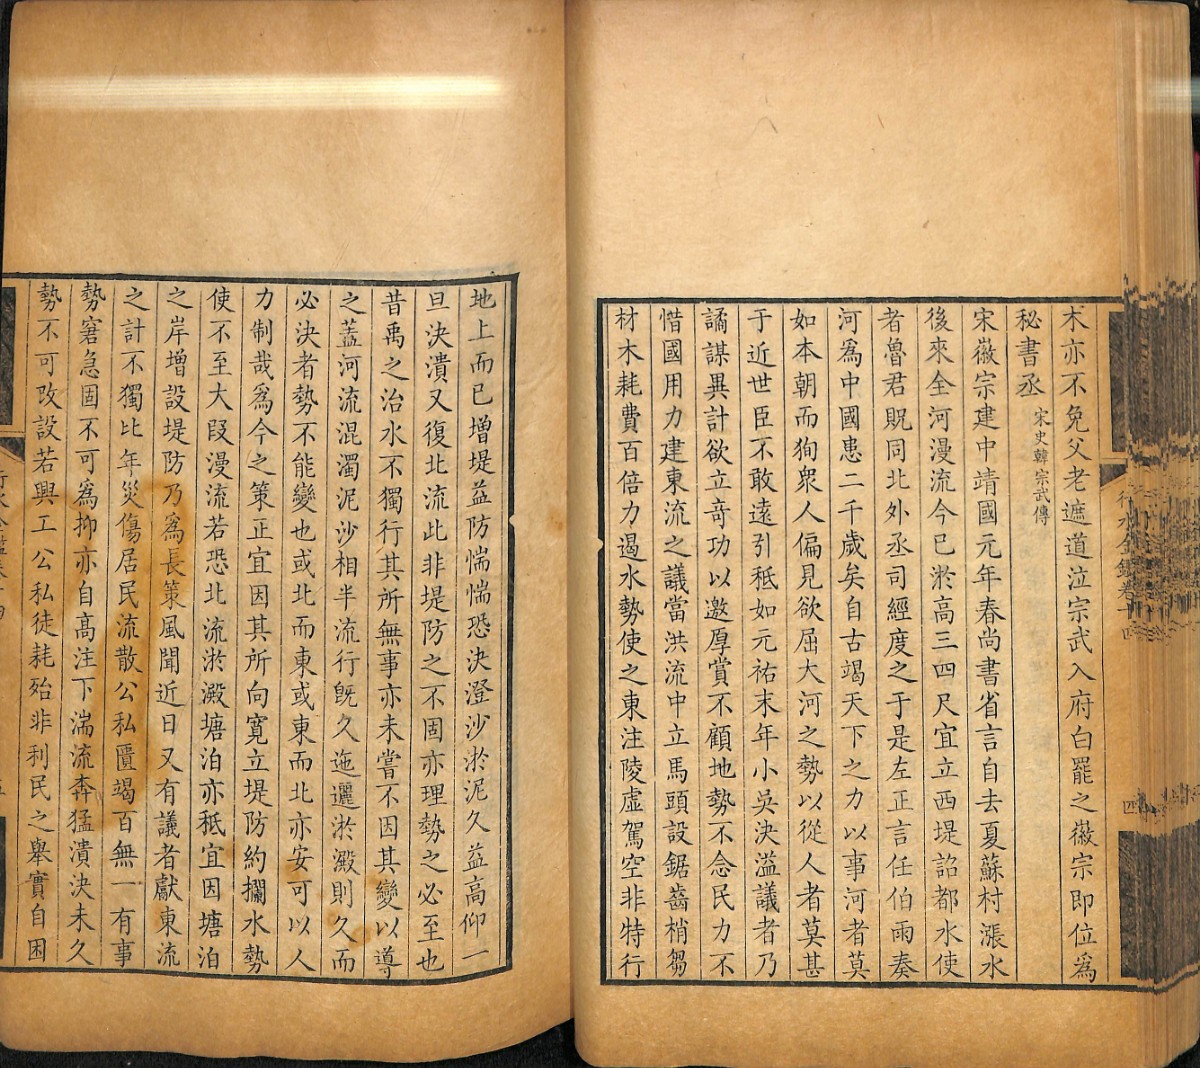 木亦不免父老遮道泣宗武入府白罷之徽宗即位爲
秘書丞宋史韓宗武傳
宋徽宗建中靖國元年春尚書省言自去夏蘇村漲水
後來全河漫流今已淤高三四尺宜立西堤詔都水使
者魯君貺同北外丞司經度之于是左正言任伯雨奏
河爲中國患二千歲矣自古竭天下之力以事河者莫
如本朝而狥衆人偏見欲屈大河之勢以從人者莫甚
于近世臣不敢遠引秪如元祐末年小吳決溢議者乃
譎謀異計欲立竒功以邀厚賞不顧地勢不念民力不
惜國用力建東流之議當洪流中立馬頭設鋸齒梢芻
材木耗費百倍力遏水勢使之東注陵虛駕空非特行
行水金鑑卷十四
四
地上而已增堤益防惴惴恐決澄沙淤泥久益高仰一
旦決潰又復北流此非堤防之不固亦理勢之必至也
昔禹之治水不獨行其所無事亦未嘗不因其變以導
之葢河流混濁泥沙相半流行旣久迤邐淤澱則久而
必決者勢不能變也或北而東或東而北亦安可以人
力制哉爲今之策正宜因其所向寛立堤防約攔水勢
使不至大叚漫流若恐北流淤澱塘泊亦秪宜因塘泊
之岸增設堤防乃爲長策風聞近日又有議者獻東流
之計不獨比年災傷居民流散公私匱竭百無一有事
勢窘急固不可爲抑亦自高注下湍流奔猛潰決未久
勢不可改設若興工公私徒耗殆非利民之舉實自困